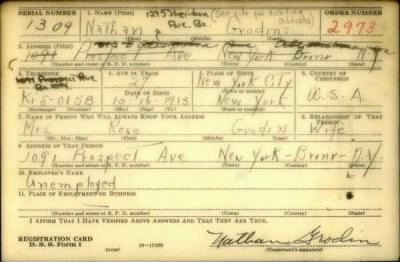 SERIAL NUMBER 1. NAME (Print) 1275 Sheridan (See file for mailing address)
Ave. Bx
1309 Nathan Grodin 2973
(First) (Middle) (Last)
2. ADDRESS (Print)
1091 Prospect Ave New York Bronx
(Number and street or R. F. D. number) (Town) (County) (State)
3. TELEPHONE 4. AGE IN YEARS 5. PLACE OF BIRTH 6. COUNTRY OF CITIZENSHIP
27 New York City
DATE OF BIRTH
Ki 5-0158 10-16-1913 New York U.S.A.
(Exchange) (Number) (Mo.) (Day) (Yr.) (State or country)
7. NAME OF PERSON WHO WILL ALWAYS KNOW YOUR ADDRESS 8. RELATIONSHIP OF THAT PERSON
Mrs. Rose Grodin Wife
(Mr., Mrs., Miss) (First) (Middle) (Last)
9. ADDRESS OF THAT PERSON
1091 Prospect Ave. New York-Bronx-N.Y.
(Number and street or R. F. D. number) (Town) (County) (State)
10. EMPLOYER'S NAME
Unemployed
11. PLACE OF EMPLOYMENT OR BUSINESS
(Number and street or R. F. D. number) (Town) (County) (State)
I AFFIRM THAT I HAVE VERIFIED ABOVE ANSWERS AND THAT THEY ARE TRUE.
REGISTRATION CARD
D. S. S. Form 1 (over) 16-17105 Nathan Grodin
(Registrant's signature)